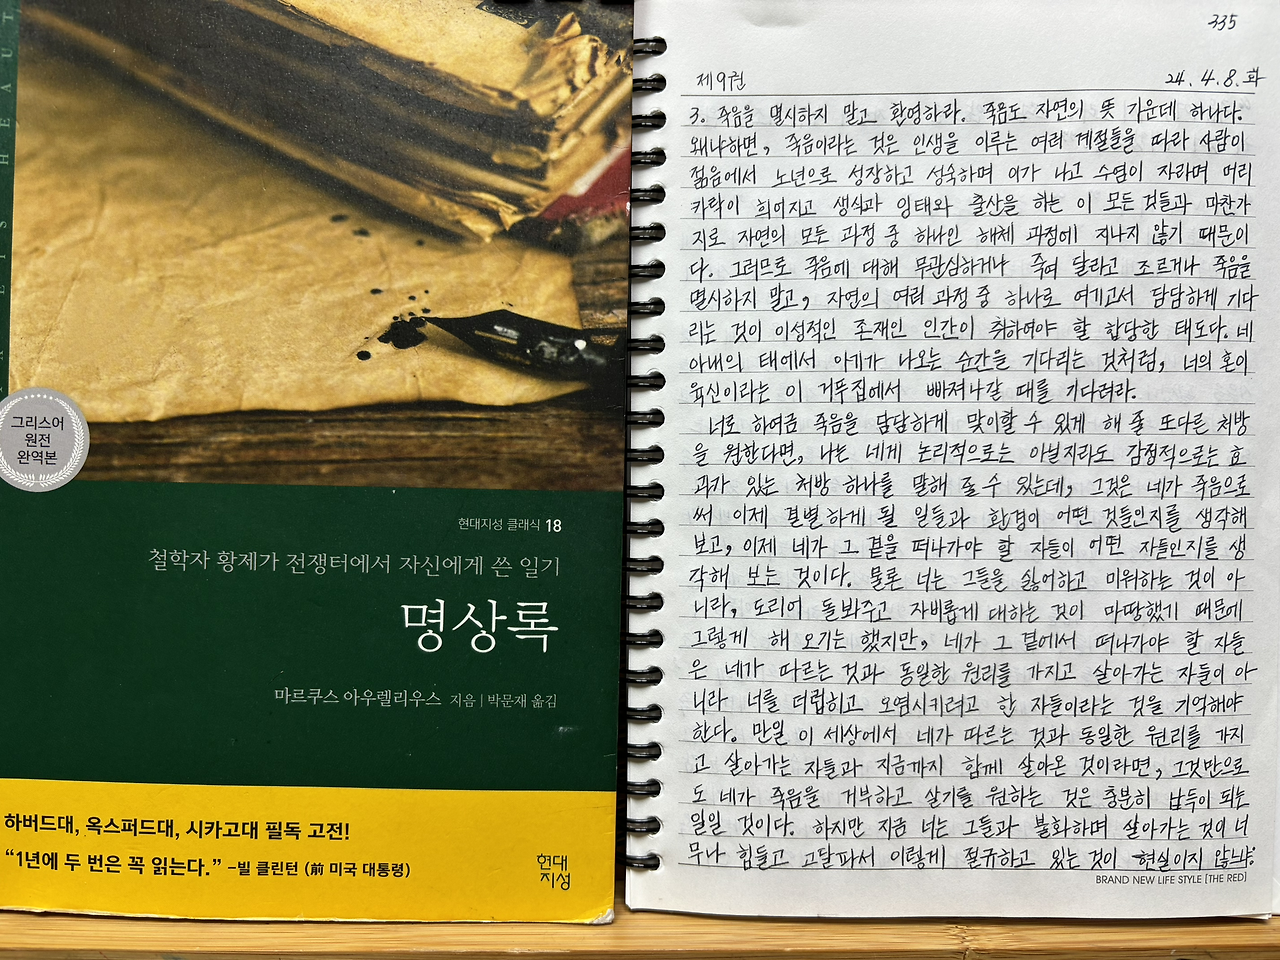 그리스어
원전
완역본
현대지성 클래식 18
철학자 황제가 전쟁터에서 자신에게 쓴 일기
명상록
마르쿠스 아우렐리우스 지음 | 박문재 옮김
하버드대, 옥스퍼드대, 시카고대 필독 고전!
“1년에 두 번은 꼭 읽는다.” -빌 클린턴 (前 미국 대통령)
현대
지성
335
제9권 24. 4. 8. 화
3. 죽음을 멸시하지 말고 환영하라. 죽음도 자연의 뜻 가운데 하나다.
왜냐하면, 죽음이라는 것은 인생을 이루는 여러 계절들을 따라 사람이
젊음에서 노년으로 성장하고 성숙하며 이가 나고 수염이 자라며 머리
카락이 희어지고 생식과 잉태와 출산을 하는 이 모든 것들과 마찬가
지로 자연의 모든 과정 중 하나인 해체 과정에 지나지 않기 때문이
다. 그러므로 죽음에 대해 무관심하거나 죽여 달라고 조르거나 죽음을
멸시하지 말고, 자연의 여러 과정 중 하나로 여기고서 담담하게 기다
리는 것이 이성적인 존재인 인간이 취하여야 할 합당한 태도다. 네
아내의 태에서 아기가 나오는 순간을 기다리는 것처럼, 너의 혼이
육신이라는 이 거푸집에서 빠져나갈 때를 기다려라.
너로 하여금 죽음을 담담하게 맞이할 수 있게 해 줄 또다른 처방
을 원한다면, 나는 네게 논리적으로는 아닐지라도 감정적으로는 효
과가 있는 처방 하나를 말해 줄 수 있는데, 그것은 네가 죽음으로
써 이제 결별하게 될 일들과 환경이 어떤 것들인지를 생각해
보고, 이제 네가 그 곁을 떠나가야 할 자들이 어떤 자들인지를 생
각해 보는 것이다. 물론 너는 그들을 싫어하고 미워하는 것이 아
니라, 도리어 돌봐주고 자비롭게 대하는 것이 마땅했기 때문에
그렇게 해 오기는 했지만, 네가 그 곁에서 떠나가야 할 자들
은 네가 따르는 것과 동일한 원리를 가지고 살아가는 자들이 아
니라 너를 더럽히고 오염시키려고 한 자들이라는 것을 기억해야
한다. 만일 이 세상에서 네가 따르는 것과 동일한 원리를 가지
고 살아가는 자들과 지금까지 함께 살아온 것이라면, 그것만으로
도 네가 죽음을 거부하고 살기를 원하는 것은 충분히 납득이 되는
일일 것이다. 하지만 지금 너는 그들과 불화하며 살아가는 것이 너
무나 힘들고 고달파서 이렇게 절규하고 있는 것이 현실이지 않느냐:
BRAND NEW LIFE STYLE [THE RED]